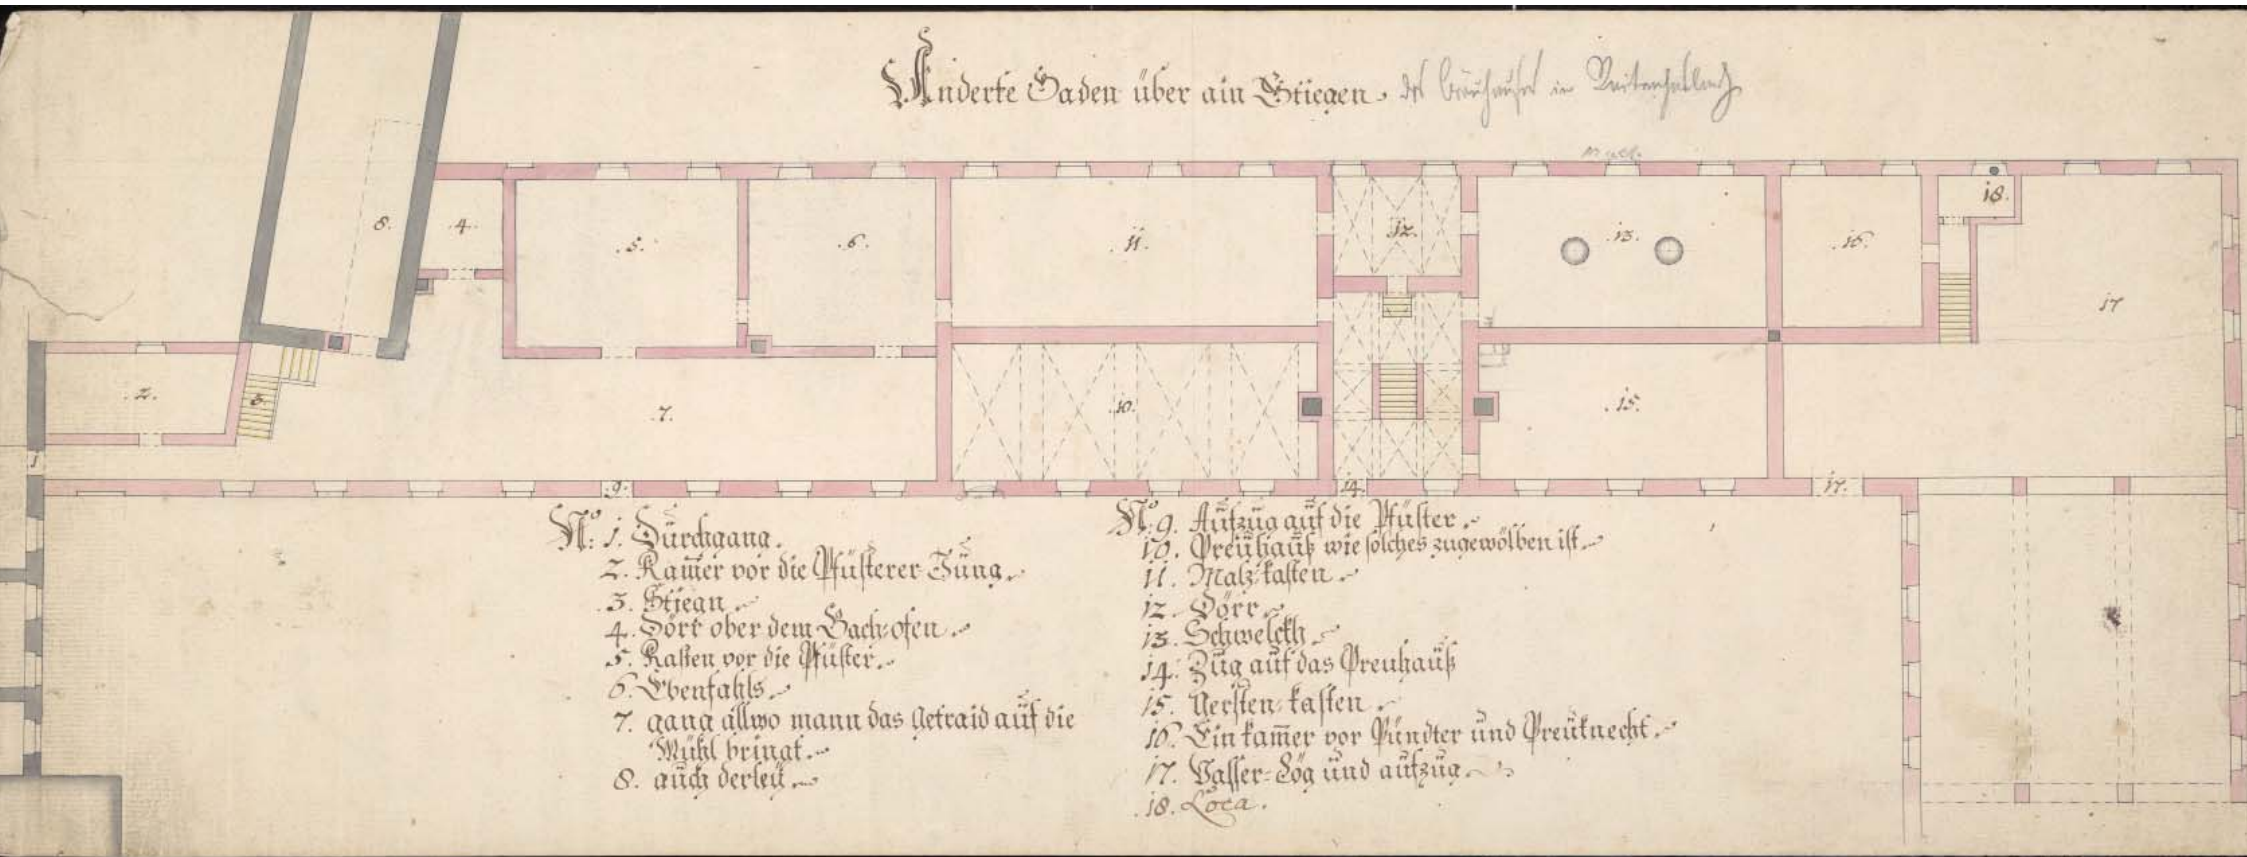 Anderte Gaden über ain Stiegen. des bräuhauses in
8.
4.
5.
6.
11.
12.
13.
16.
18.
17
2.
3.
7.
10.
15.
1
9.
14.
17.
No: 1. Dürchgang.
2. Kam̅er vor die Pfüsterer Jüng.
3. Stiegn.
4. Dörr ober dem Bach-ofen.
5. Kasten vor die Pfüster.
6. Ebenfahls.
7. gang allwo mann das Getraid auf die
Mühl bringt.
8. auch derleÿ.
No: 9. Aufzug auf die Pfüster.
10. Preühauß wie solches zugewölben ist.
11. Malz-kasten.
12. Dörr.
13. Schwelckh.
14. Zug auf das Preuhauß
15. Gersten-kasten.
16. Ein kam̅er vor Pündter und Preüknecht.
17. Vasser-Lög und aufzüg.
18. Loca.